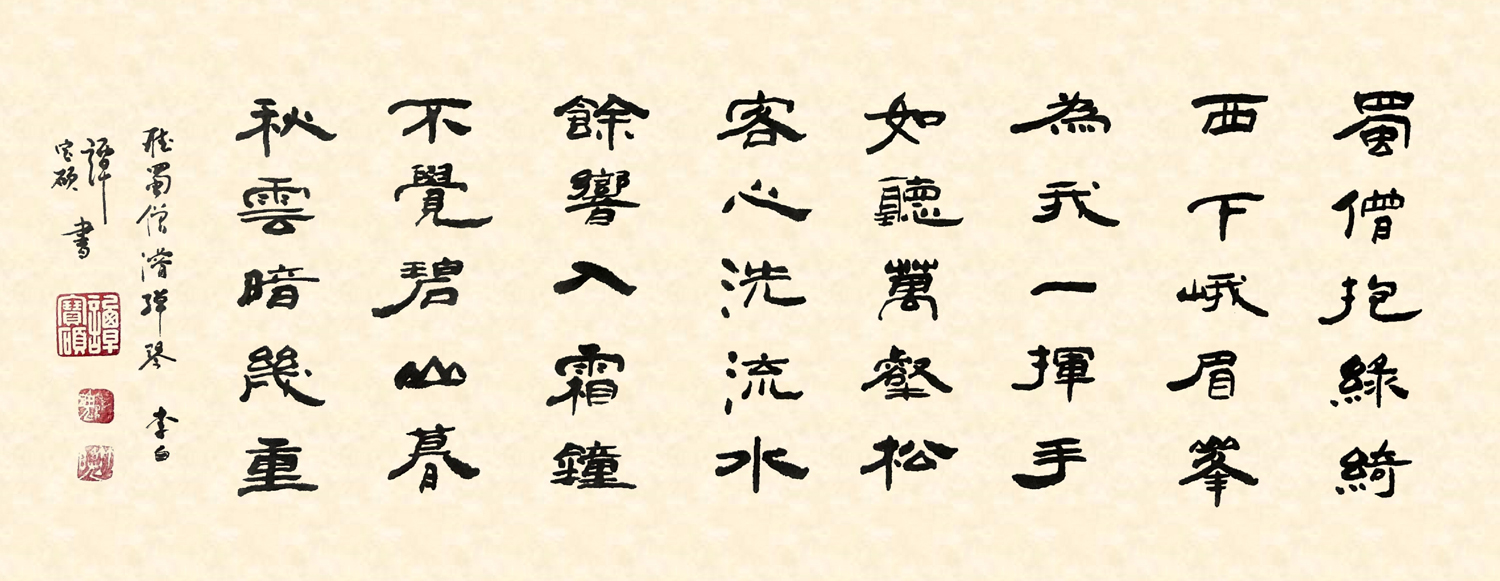 蜀僧抱綠綺
西下峨眉峯
為我一揮手
如聽萬壑松
客心洗流水
餘響入霜鐘
不覺碧山暮
秋雲暗幾重
聽蜀僧濬彈琴 李白
譚宝碩書
譚寶碩